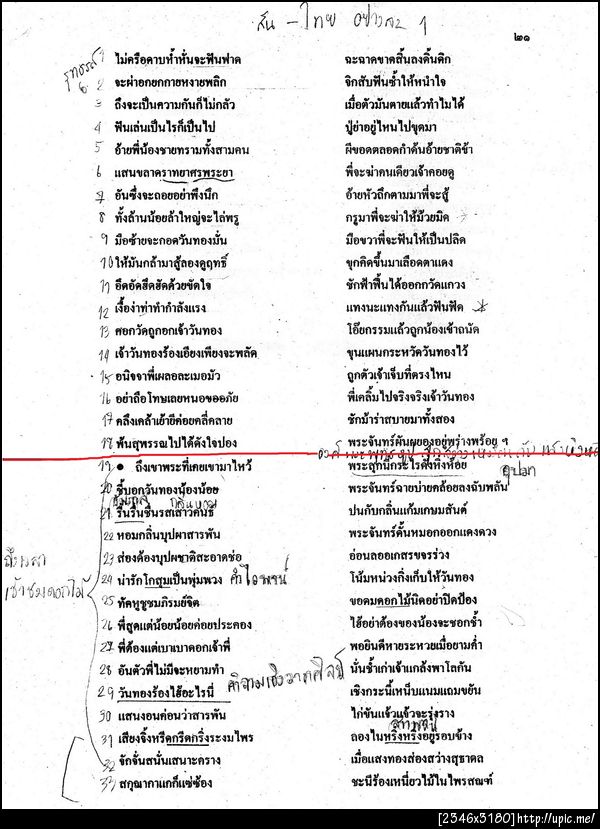 สัน - ไทย อย่างละ 1
๒๑
1 ไม่ครือคาบห้ำหั่นจะฟันฟาด ฉะฉาดขาดสิ้นลงดิ้นดิก
2 จะผ่าอกยกกายหงายพลิก จิกสับฟันซ้ำให้หนำใจ
3 ถึงจะเป็นความกันก็ไม่กลัว เมื่อตัวมันตายแล้วทำไมได้
4 ฟันเล่นเป็นไรก็เป็นไป ปู่ย่าอยู่ไหนไปขุดมา
5 อ้ายพี่น้องชายทรามทั้งสามคน ผีขอดตลอดก้นอ้ายชาติข้า
6 แสนขลาดราทยาศรพระยา พี่จะฆ่าคนเดียวเจ้าคอยดู
7 อันซึ่งจะถอยอย่าพึงนึก อ้ายหัวถึกตามมาพี่จะสู้
8 ทั้งล้านน้อยล้าใหญ่จะไล่พรู กรูมาพี่จะฆ่าให้ม้วยมิด
9 มือซ้ายจะกอดวันทองมั่น มือขวาพี่จะฟันให้เป็นปลิด
10 ให้มันกล้ามาสู้ลองดูฤทธิ์ ขุกคิดขึ้นมาเลือดตาแดง
11 ฮึดฮัดฮึดฮัดด้วยขัดใจ ชักฟ้าฟื้นได้ออกกวัดแกวง
12 เงื้อง่าท่าทำกำลังแรง แทงนะแทงกันแล้วฟันฟัด
13 ศอกวัดถูกอกเจ้าวันทอง โอ๊ยกรรมแล้วถูกน้องเข้าถนัด
14 เจ้าวันทองร้องเอียงเพียงจะพลัด ขุนแผนกระหวัดวันทองไว้
15 อนิจจาพี่เผลอละเมอมัว ถูกตัวเจ้าเจ็บที่ตรงไหน
16 อย่าถือโทษเลยหนอขออภัย พี่เคลิ้มไปจริงจริงเจ้าวันทอง
17 คลึงเคล้าเย้ายีค่อยคลี่คลาย ชักม้าร่าสบายมาทั้งสอง
18 พ้นสุพรรณไปได้ดังใจปอง พระจันทร์ผันผยองอยู่พร่างพร้อย ฯ
19 ● ถึงเขาพระที่เคยเขามาไหว้ พระสุทนีกระไรดังหิ่งห้อย
20 ชี้บอกวันทองน้องน้อย พระจันทร์ฉายบ่ายคล้อยลงฉับพลัน
21 รื่นรื่นชื่นรสเสาวคันธ์ ปนกับกลิ่นแก้มเกษมสันต์
22 หอมกลิ่นบุปผาสารพัน พระจันทร์ดั้นหมอกออกแดดวง
23 ส่องต้องบุปผชาติสะอาดช่อ อ่อนลออเกสรขจรร่วง
24 น่ารักโกสุมเป็นพุ่มพวง โน้มหน่วงกิ่งเก็บให้วันทอง
25 ทัดหูชูชมภิรมย์จิต ขอดมดอกไม้นิดอย่าปิดป้อง
26 พี่สุดแต่น้อยน้อยค่อยประคอง ไฮ้อย่าต้องของน้องจะชอกช้ำ
27 พี่ต้องแต่เบาเบาดอกเจ้าพี่ พอยินดีหายระหวยเมื่อยามค่ำ
28 อันตัวพี่ไม่มีจะหยามทำ นั่นช้ำเก่าเจ้าแกล้งพาโลกัน
29 วันทองร้องไฮ้อะไรนี่ เชิงกระนี้เหน็บแนมแถมขยัน
30 แสนงอนค่อนว่าสารพัน ไก่ขันแจ้วแจ้วจะรุ่งราง
31 เสียงจิ้งหรีดกรีดกริ่งระงมไพร ลองในหริ่งหริ่งอยู่รอบข้าง
32 จักจั่นสนั่นเสนาะคราง เมื่อแสงทองส่องสว่างสุธาดล
33 สกุณากาแก็แซ่ซ้อง ชะนีร้องเหนี่ยวไม้ในไพรสณฑ์
อุปมา
คำไวพจน์
ชมดอกไม้
[2346x3180]http://upic.me/